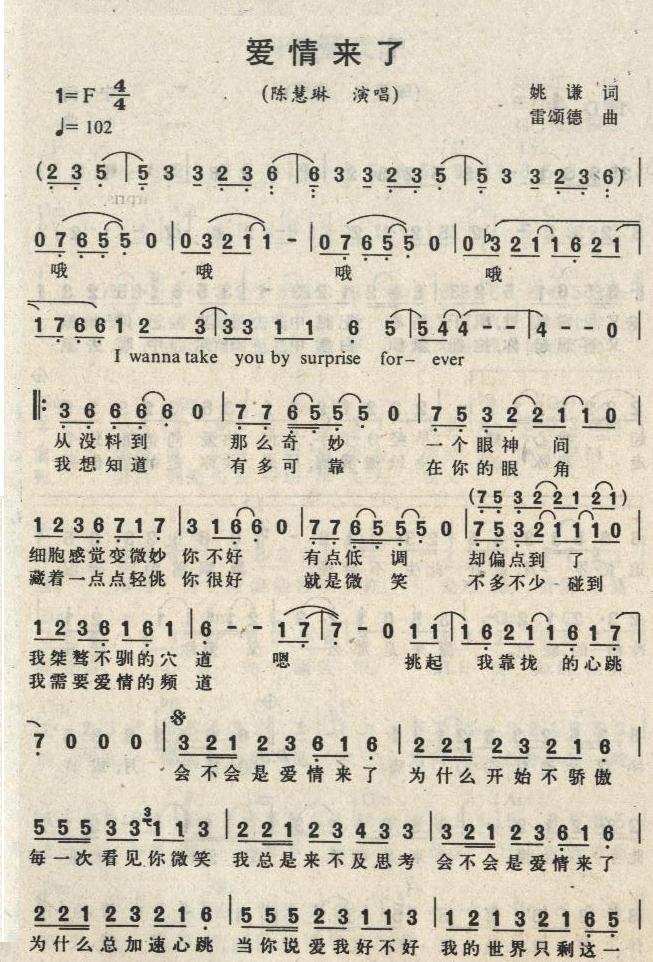 爱情来了
1=F 4/4
(陈慧琳 演唱)
姚谦 词
♩=102
雷颂德 曲
(2 3 5 | 5 3 3 2 3 6 | 6 3 3 2 3 5 | 5 3 3 2 3 6) |
0 7 6 5 5 0 | 0 3 2 1 1 - | 0 7 6 5 5 0 | 0 ♭3 2 1 1 6 2 1 |
哦 哦 哦 哦
1 7 6 6 1 2 3 | 3 3 3 1 1 6 5 | 5 4 4 - - | 4 - - 0
I wanna take you by surprise for- ever
‖: 3 6 6 6 6 0 | 7 7 6 5 5 5 0 | 7 5 3 2 2 1 1 0
从没料到 那么奇妙 一个眼神间
我想知道 有多可靠 在你的眼角
(7 5 3 2 2 1 2 1)
1 2 3 6 7 1 7 | 3 1 6 6 0 | 7 7 6 5 5 5 0 | 7 5 3 2 1 1 1 0
细胞感觉变微妙 你不好 有点低调 却偏点到了
藏着一点点轻佻 你很好 就是微笑 不多不少碰到
1 2 3 6 1 6 1 | 6 - - 1 7 | 7 - 0 1 1 | 1 6 2 1 1 6 1 7
我桀骜不驯的穴道 嗯 挑起 我靠拢的心跳
我需要爱情的频道
7 0 0 0 | 3 2 1 2 3 6 1 6 | 2 2 1 2 3 2 1 6 |
会不会是爱情来了 为什么开始不骄傲
5 5 5 3 3 3 1 1 3 | 2 2 1 2 3 4 3 3 | 3 2 1 2 3 6 1 6 |
每一次看见你微笑 我总是来不及思考 会不会是爱情来了
2 2 1 2 3 2 1 6 | 5 5 5 2 3 1 1 3 | 1 2 1 3 2 1 6 5 |
为什么总加速心跳 当你说爱我好不好 我的世界只剩这一